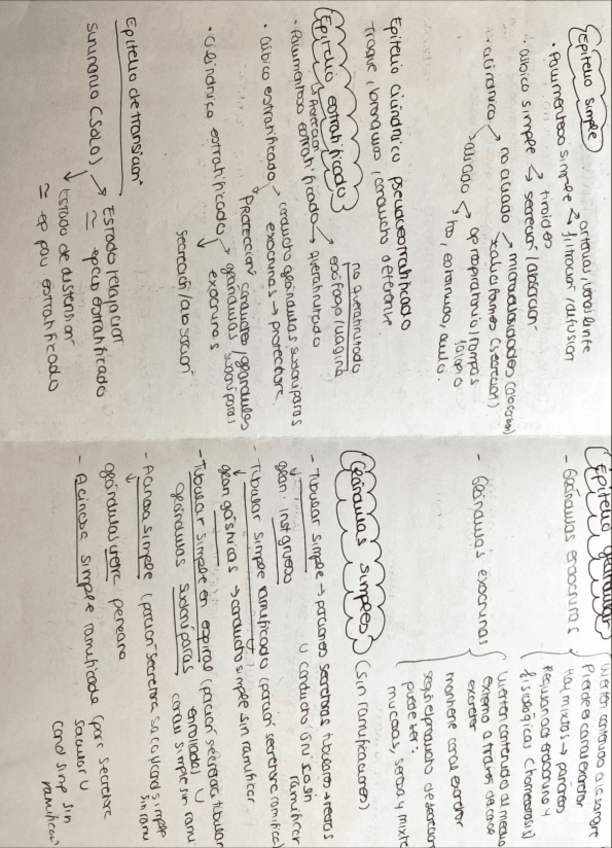 Epitelio simple
· Pavimentoso simple → arterias, venas, lente
filtración / difusión
· cúbico simple → tiroides
secreción / absorción
· cilíndrico
no ciliado → microvellosidades (absorción)
caliciformes (secreción)
ciliado → ap respiratorio, trompas
falopio
Epitelio cilíndrico pseudoestratificado
traquea, bronquios, conducto deferente
Epitelio estratificado
↳ Protección
· Pavimentoso estratificado
no queratinizado
esófago/vagina
queratinizado
· cúbico estratificado
conducto glándulas sudoríparas
exocrinas → protectora
· cilíndrico estratificado
Protección conductos glándulas
glándulas sudoríparas
exocrinas
secreción/absorción
Epitelio de transición
urinario (solo)
Estado relajación
≃ ep cub estratificado
Estado de distensión
≃ ep pav estratificado
Epitelio glandular
- Glándulas endocrinas
vierten contenido a la sangre
Pierde el canal excretor
Hay mixtas → páncreas
Regulan act endocrino y
fisiológicas (homeostasis)
- Glándulas exocrinas
vierten contenido al medio
externo a través de canal
excretor
mantiene canal excretor
según el producto de secreción
puede ser:
mucosas, serosa y mixta
Glándulas simples (sin ramificaciones)
- Tubular simple → porciones secretoras tubulares → rectas
↓ u conducto único sin
glan. inst grueso ramificar
- Tubular simple ramificada (porción secretora ramifica)
↓
glan gástricas → conducto simple sin ramificar
- Tubular simple en espiral (porción secretora tubular
enrollada) u
glándulas sudoríparas canal simple sin rami
- Acinosa simple (porción secretora sacular/cond simple
↓ sin rami
glándulas uretra peneana
- Acinosa simple ramificada (porc secretora
sacular u
cond simp sin
ramificar